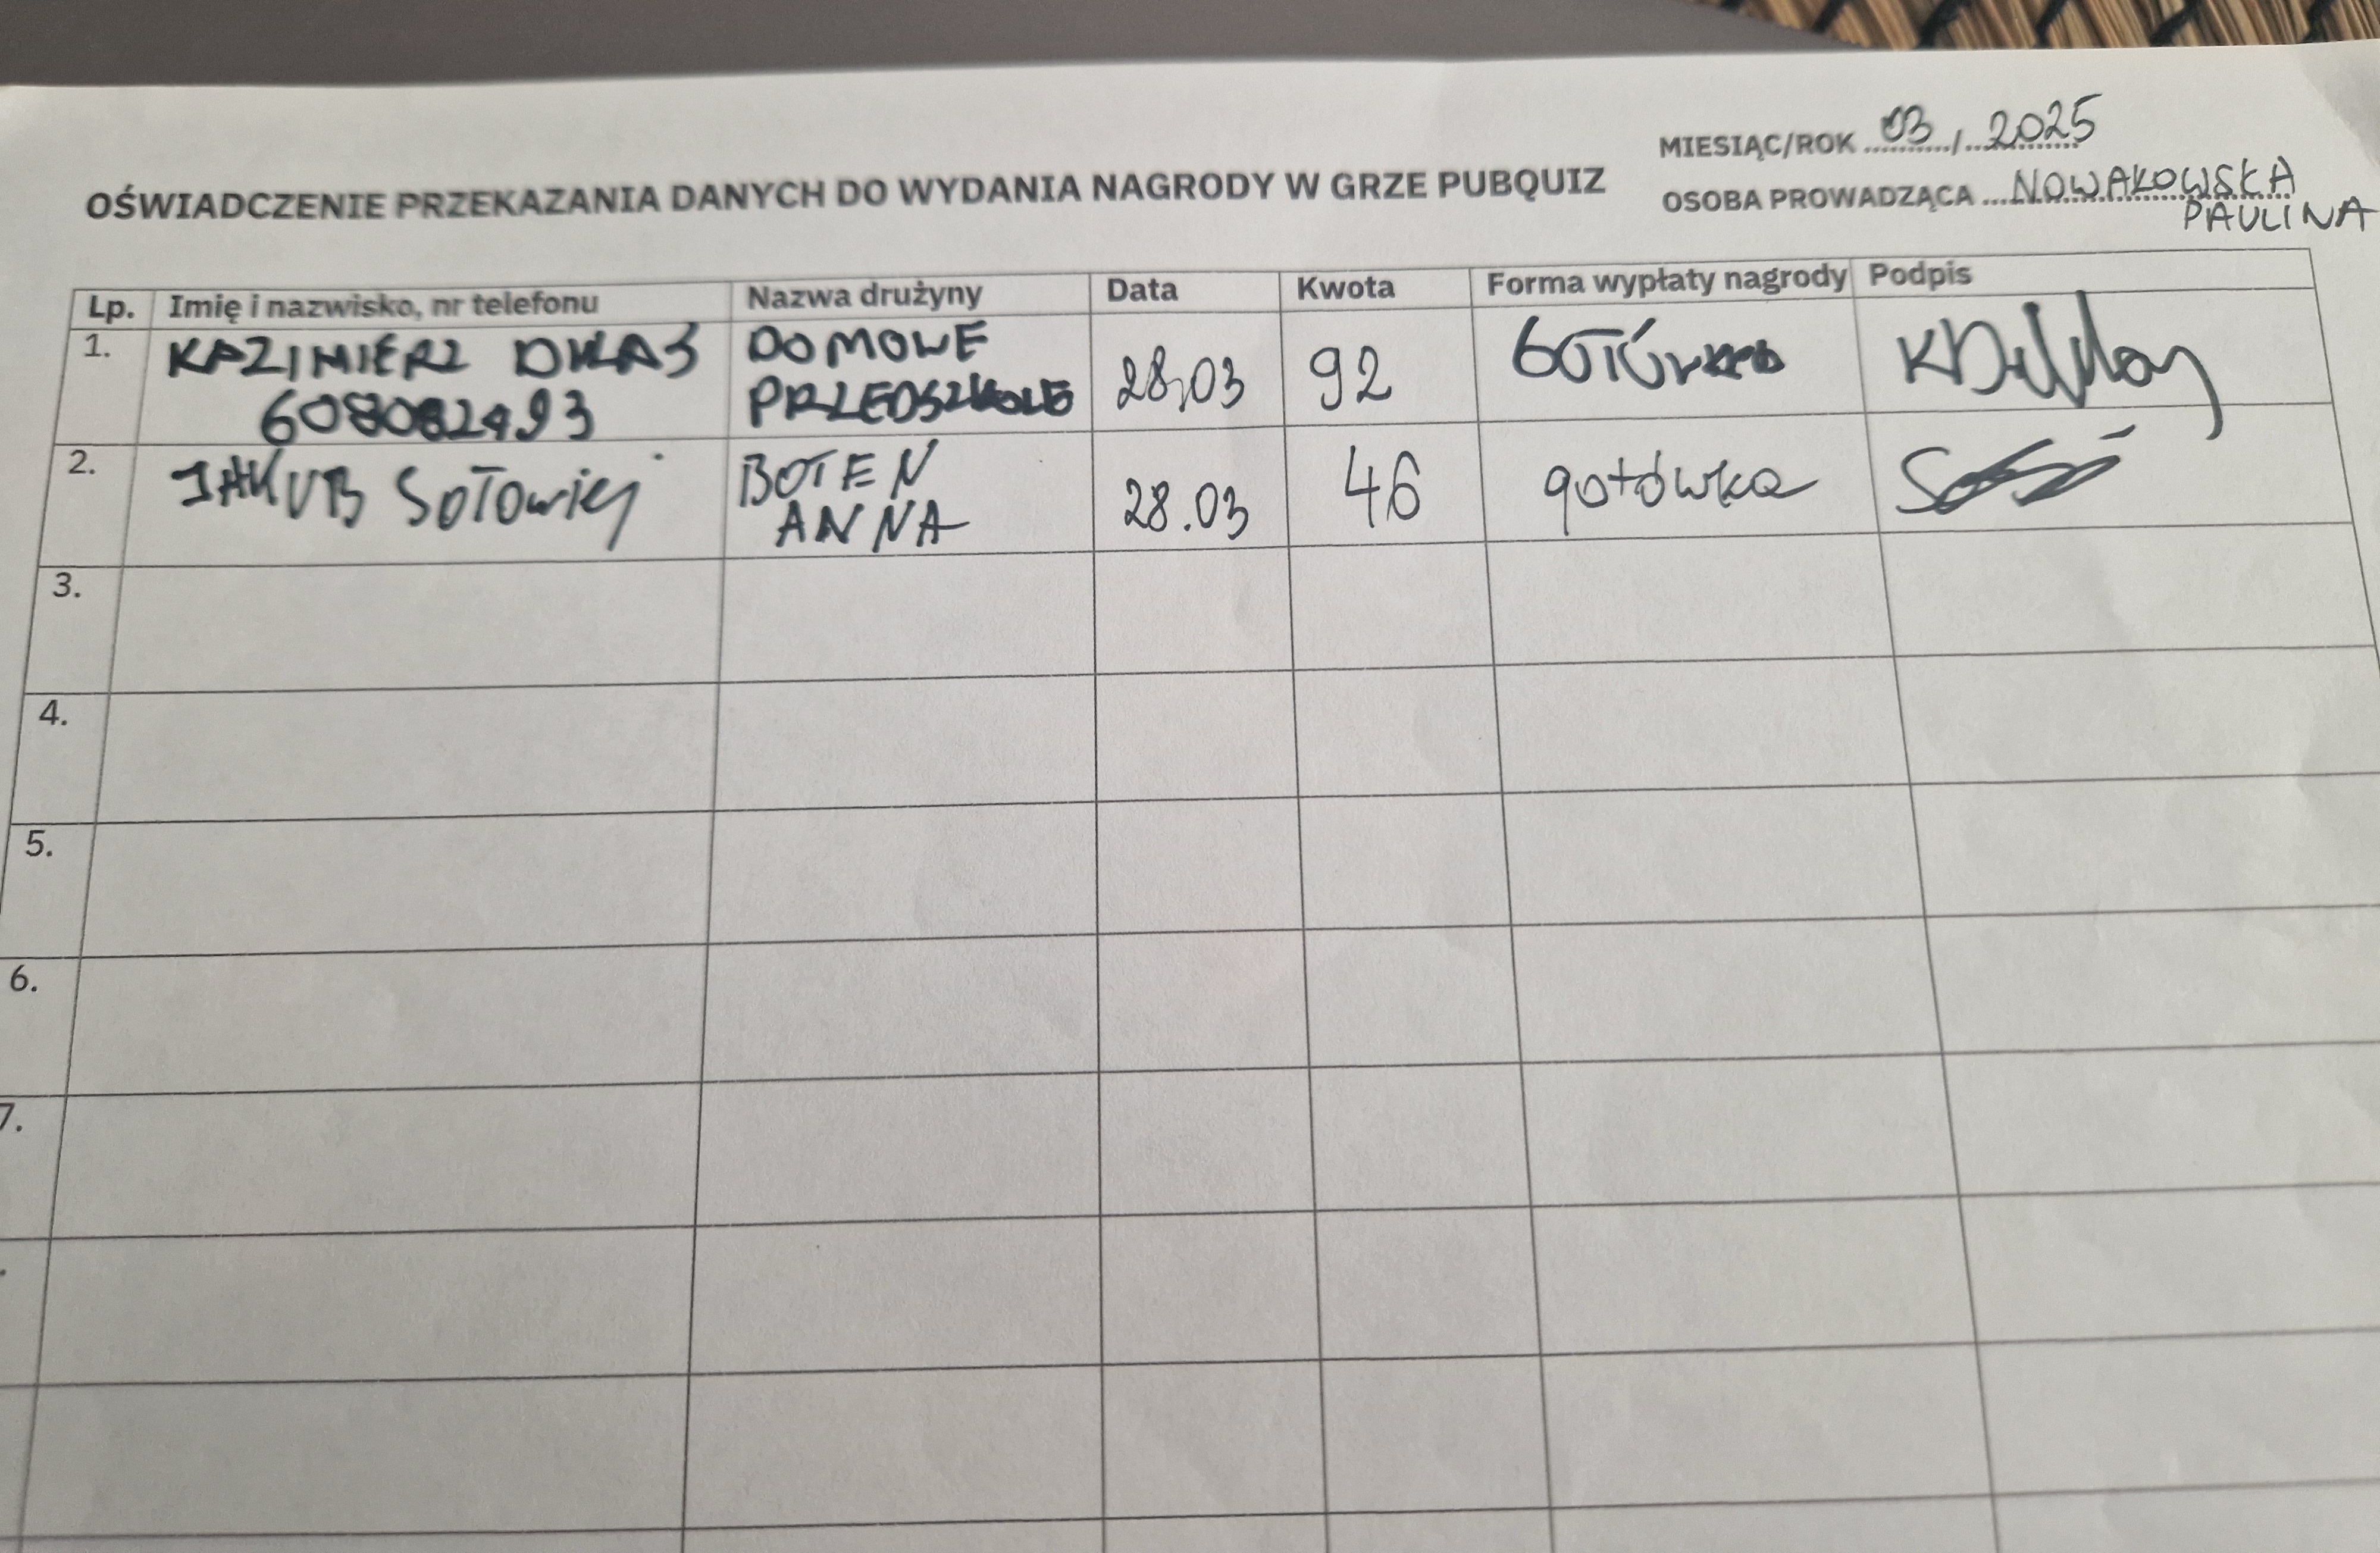 MIESIĄC/ROK 03 / 2025
OŚWIADCZENIE PRZEKAZANIA DANYCH DO WYDANIA NAGRODY W GRZE PUBQUIZ
OSOBA PROWADZĄCA NOWAKOWSKA
PAULINA
Lp. Imię i nazwisko, nr telefonu Nazwa drużyny Data Kwota Forma wypłaty nagrody Podpis
1. KAZIMIERZ DOMOWE
PRZEDSZKOLE 28.03 92 GOTÓWKA
2. JAKUB Sołowiej BOTEN
ANNA 28.03 46 gotówka
3.
4.
5.
6.
7.